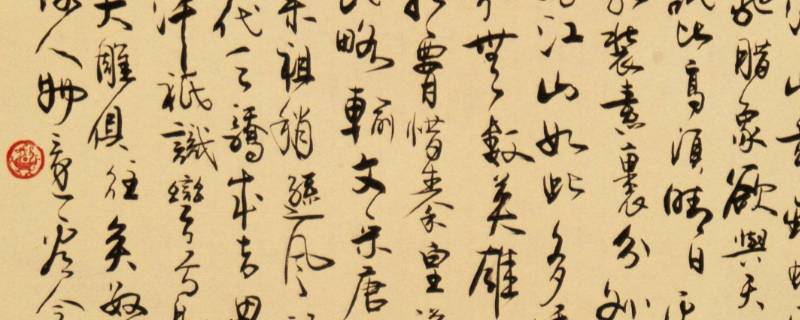 山
馳腊象欲與天
比高須晴日
装素裹分外
江山如此多
無數英雄
腰惜秦皇
略輸文采唐
宋祖稍遜風
代天驕成吉思
汗祇識彎弓射
大雕俱往矣數
人物還看今